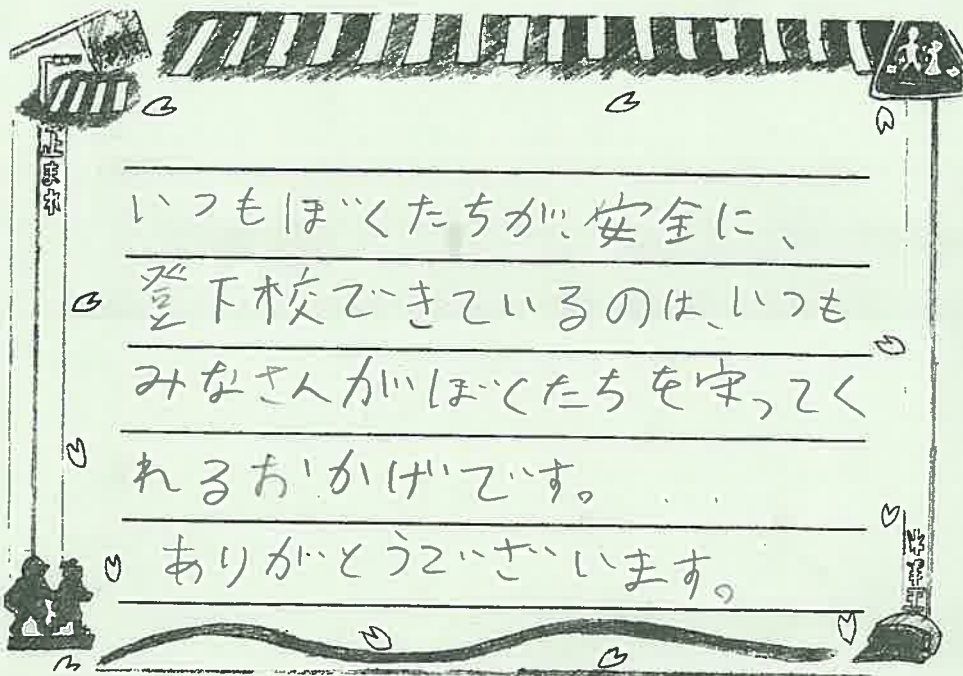 いつもぼくたちが、安全に、
登下校できているのは、いつも
みなさんがぼくたちを守ってく
れるおかげです。
ありがとうございます。